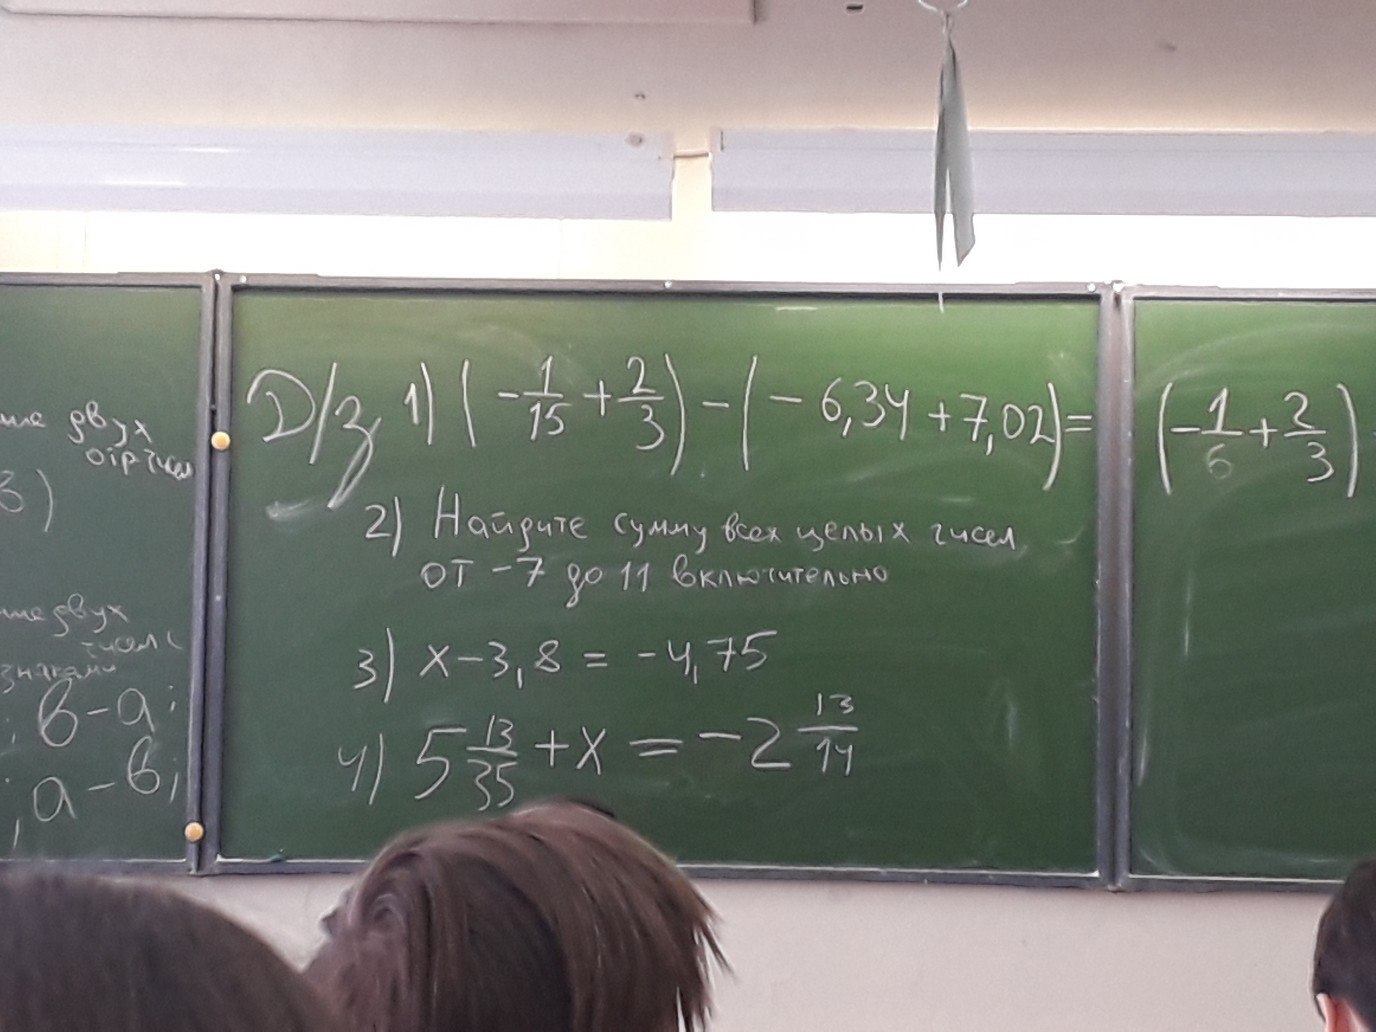 двух
3)
двух
знаками
; в-а;
; а-в;
Д/з 1) (-1/15 + 2/3) - (-6,34 + 7,02) =
2) Найдите сумму всех целых чисел
от -7 до 11 включительно
3) x - 3,8 = -4,75
4) 5 13/35 + x = -2 13/14
(-1/6 + 2/3)